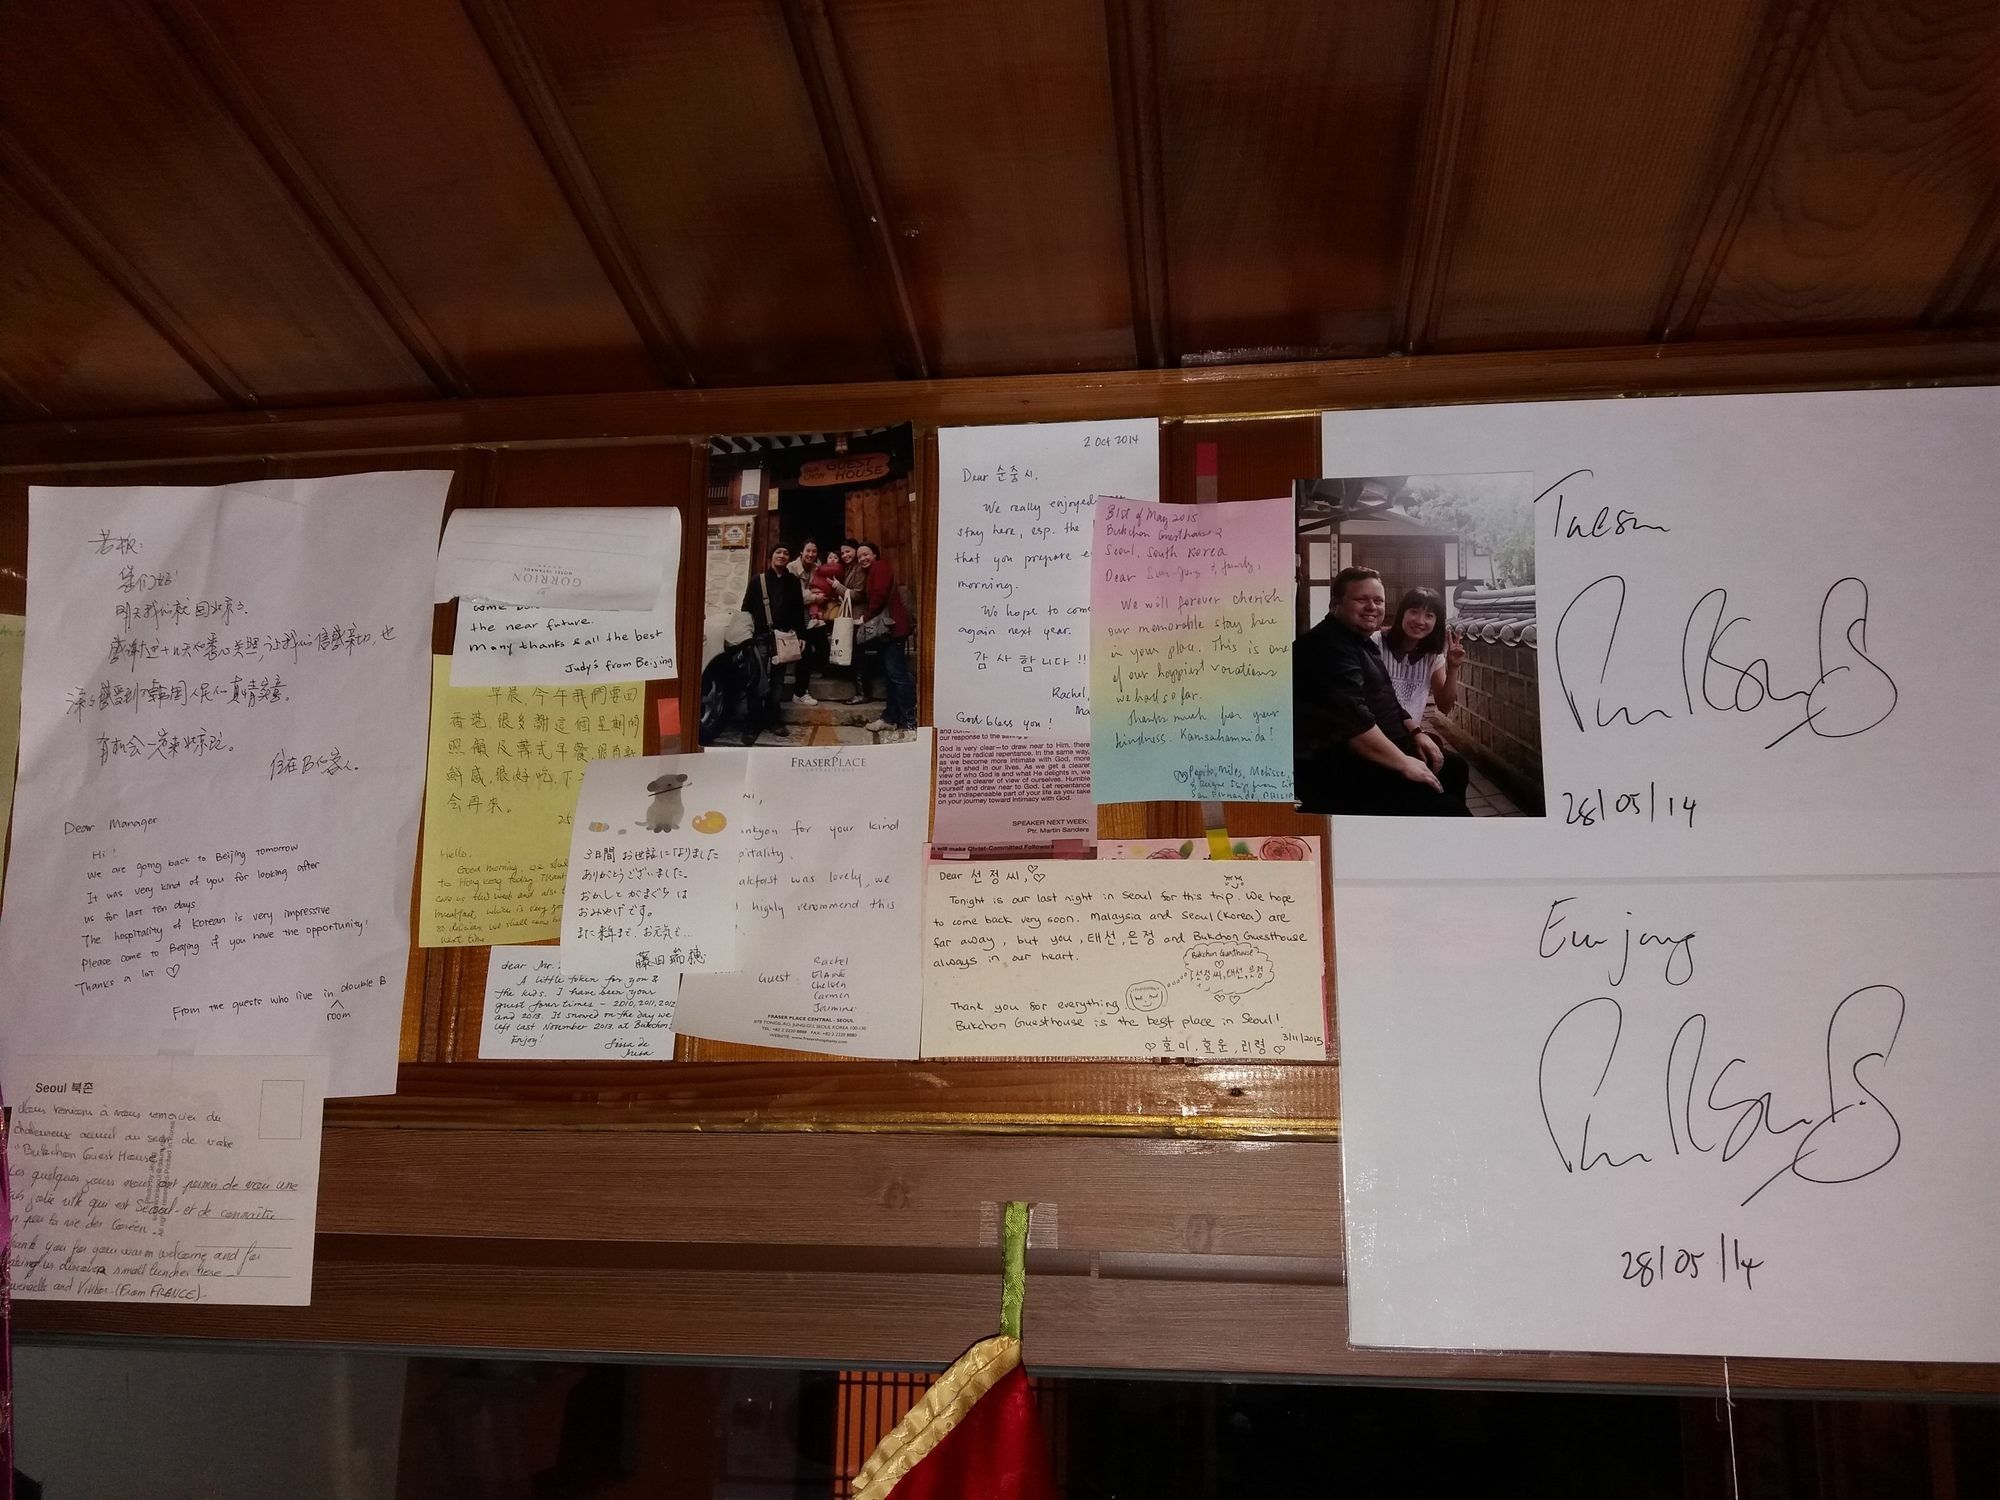 老板：
您们好！
明天我们就回北京了.
感谢这十几天的悉心关照,让我们倍感亲切,也
深深感受到了韩国人民的真情实意。
有机会一定来北京玩。
住在B的客人.
Dear Manager
Hi!
We are going back to Beijing tomorrow
It was very kind of you for looking after
us for last ten days
The hospitality of Korean is very impressive
Please come to Beijing if you have the opportunity!
Thanks a lot ♡
From the guests who live in double B
room
Seoul 북촌
Nous tenions à vous remercier du
chaleureux accueil au sein de votre
"Bukchon Guest House
Les quelques jours nous ont permis de voir une
très jolie ville qui est Séoul et de connaître
un peu la vie des Coréen.
Thank you for your warm welcome and for
making us discover small lunches here
and Viktor (From FRANCE)
GORRION
HOTEL ISTANBUL
the near future.
many thanks & all the best
Judy's from Beijing
早晨,今午我們要回
香港.很多謝這個星期的
照顧及韓式早餐.很有新
鮮感,很好吃.下
會再来。
25
Hello,
Good morning, we
to Hong Kong today. Thank
care us this week and also
breakfast, which is very
so delicious. We shall come
next time
3日間 お世話になりました
ありがとうございました。
おかしとがまぐちは
おみやげです。
また来年まで、お元気で…
藤田瑞穂
dear Mr.
A little token for you &
the kids. I have been your
guest four times - 2010, 2011, 2012
and 2013. It snowed on the day we
left last November 2013 at Bukchon
Enjoy!
GUEST
HOUSE
89
FRASER PLACE
CENTRAL SEOUL
Hi,
ankyou for your kind
pitality.
akfast was lovely, we
highly recommend this
Guest:
Rachel
ELAINE
Chelsea
Carmen
Jasmine
FRASER PLACE CENTRAL - SEOUL
2 Oct 2014
Dear 순중 씨,
We really enjoyed
stay here, esp. the
that you prepare
morning.
We hope to come
again next year.
감사합니다!!
Rachel,
God bless you!
our response to the
God is very clear—to draw near to Him, there
should be radical repentance. In the same way,
as we become more intimate with God, more
light is shed in our lives. As we get a clearer
view of who God is and what He delights in, we
also get a clearer of view of ourselves. Humble
yourself and draw near to God. Let repentance
be an indispensable part of your life as you take
on your journey toward intimacy with God.
SPEAKER NEXT WEEK:
Ptr. Martin Sanders
will make Christ-Committed Followers
31st of May 2015
Bukchon Guesthouse 2
Seoul, South Korea
Dear Sun-Jung & family,
We will forever cherish
our memorable stay here
in your place. This is one
of our happiest vacations
we had so far.
Thanks much for your
kindness. Kamsahamnida!
♡ Pepito, Miles, Melisse,
San Fernando,
Dear 선정씨,♡
Tonight is our last night in Seoul for this trip. We hope
to come back very soon. Malaysia and Seoul (Korea) are
far away, but you, 태선, 은정 and Bukchon Guesthouse
always in our heart.
Bukchon Guesthouse
선정씨, 태선, 은정
Thank you for everything
Bukchon Guesthouse is the best place in Seoul!
♡ 효미, 효운, 리령 ♡ 3/11/2015
Taesun
28/05/14
Eunjung
28/05/14